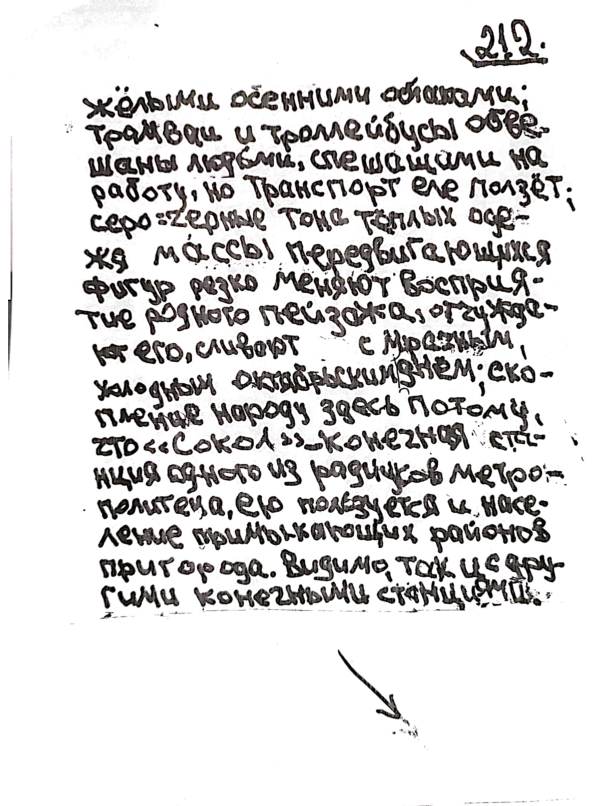 212.
жёлыми осенними облаками;
трамваи и троллейбусы обве-
шаны людьми, спешащими на
работу, но транспорт еле ползёт;
серо-чёрные тона тёплых оде-
жд массы передвигающихся
фигур резко меняют восприя-
тие родного пейзажа, отчужда-
ют его, сливают с мрачным,
холодным октябрьским днём; ско-
пление народу здесь потому,
что «Сокол» – конечная ста-
нция одного из радиусов метро-
политена, ею пользуется и насе-
ление примыкающих районов
пригорода. Видимо, так и с дру-
гими конечными станциями.